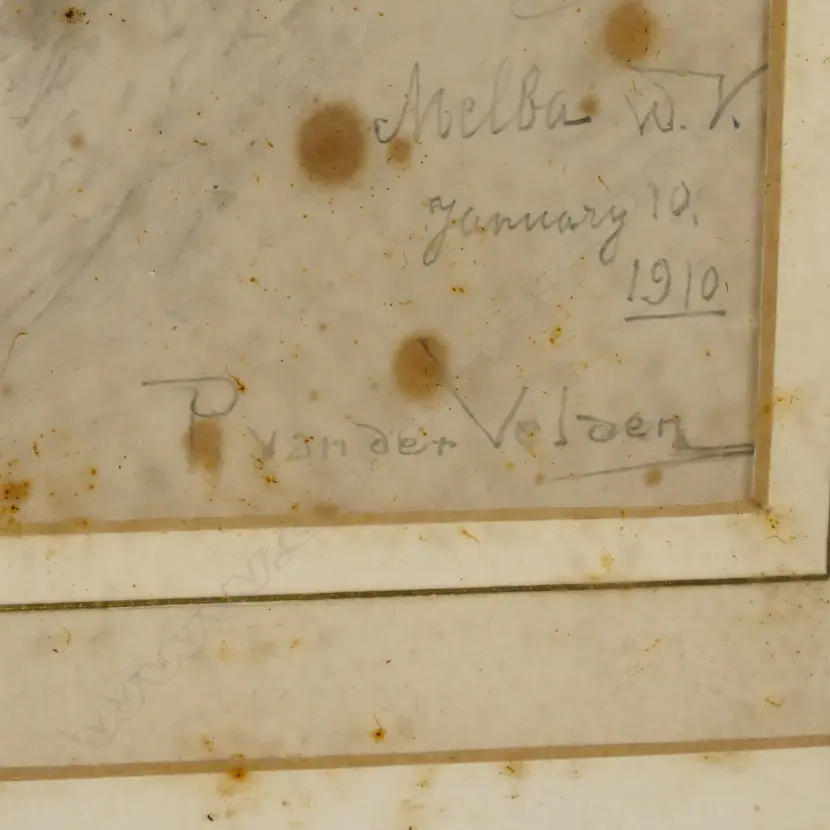 Melba W.V.
January 10.
1910
P. van der Velden
www.